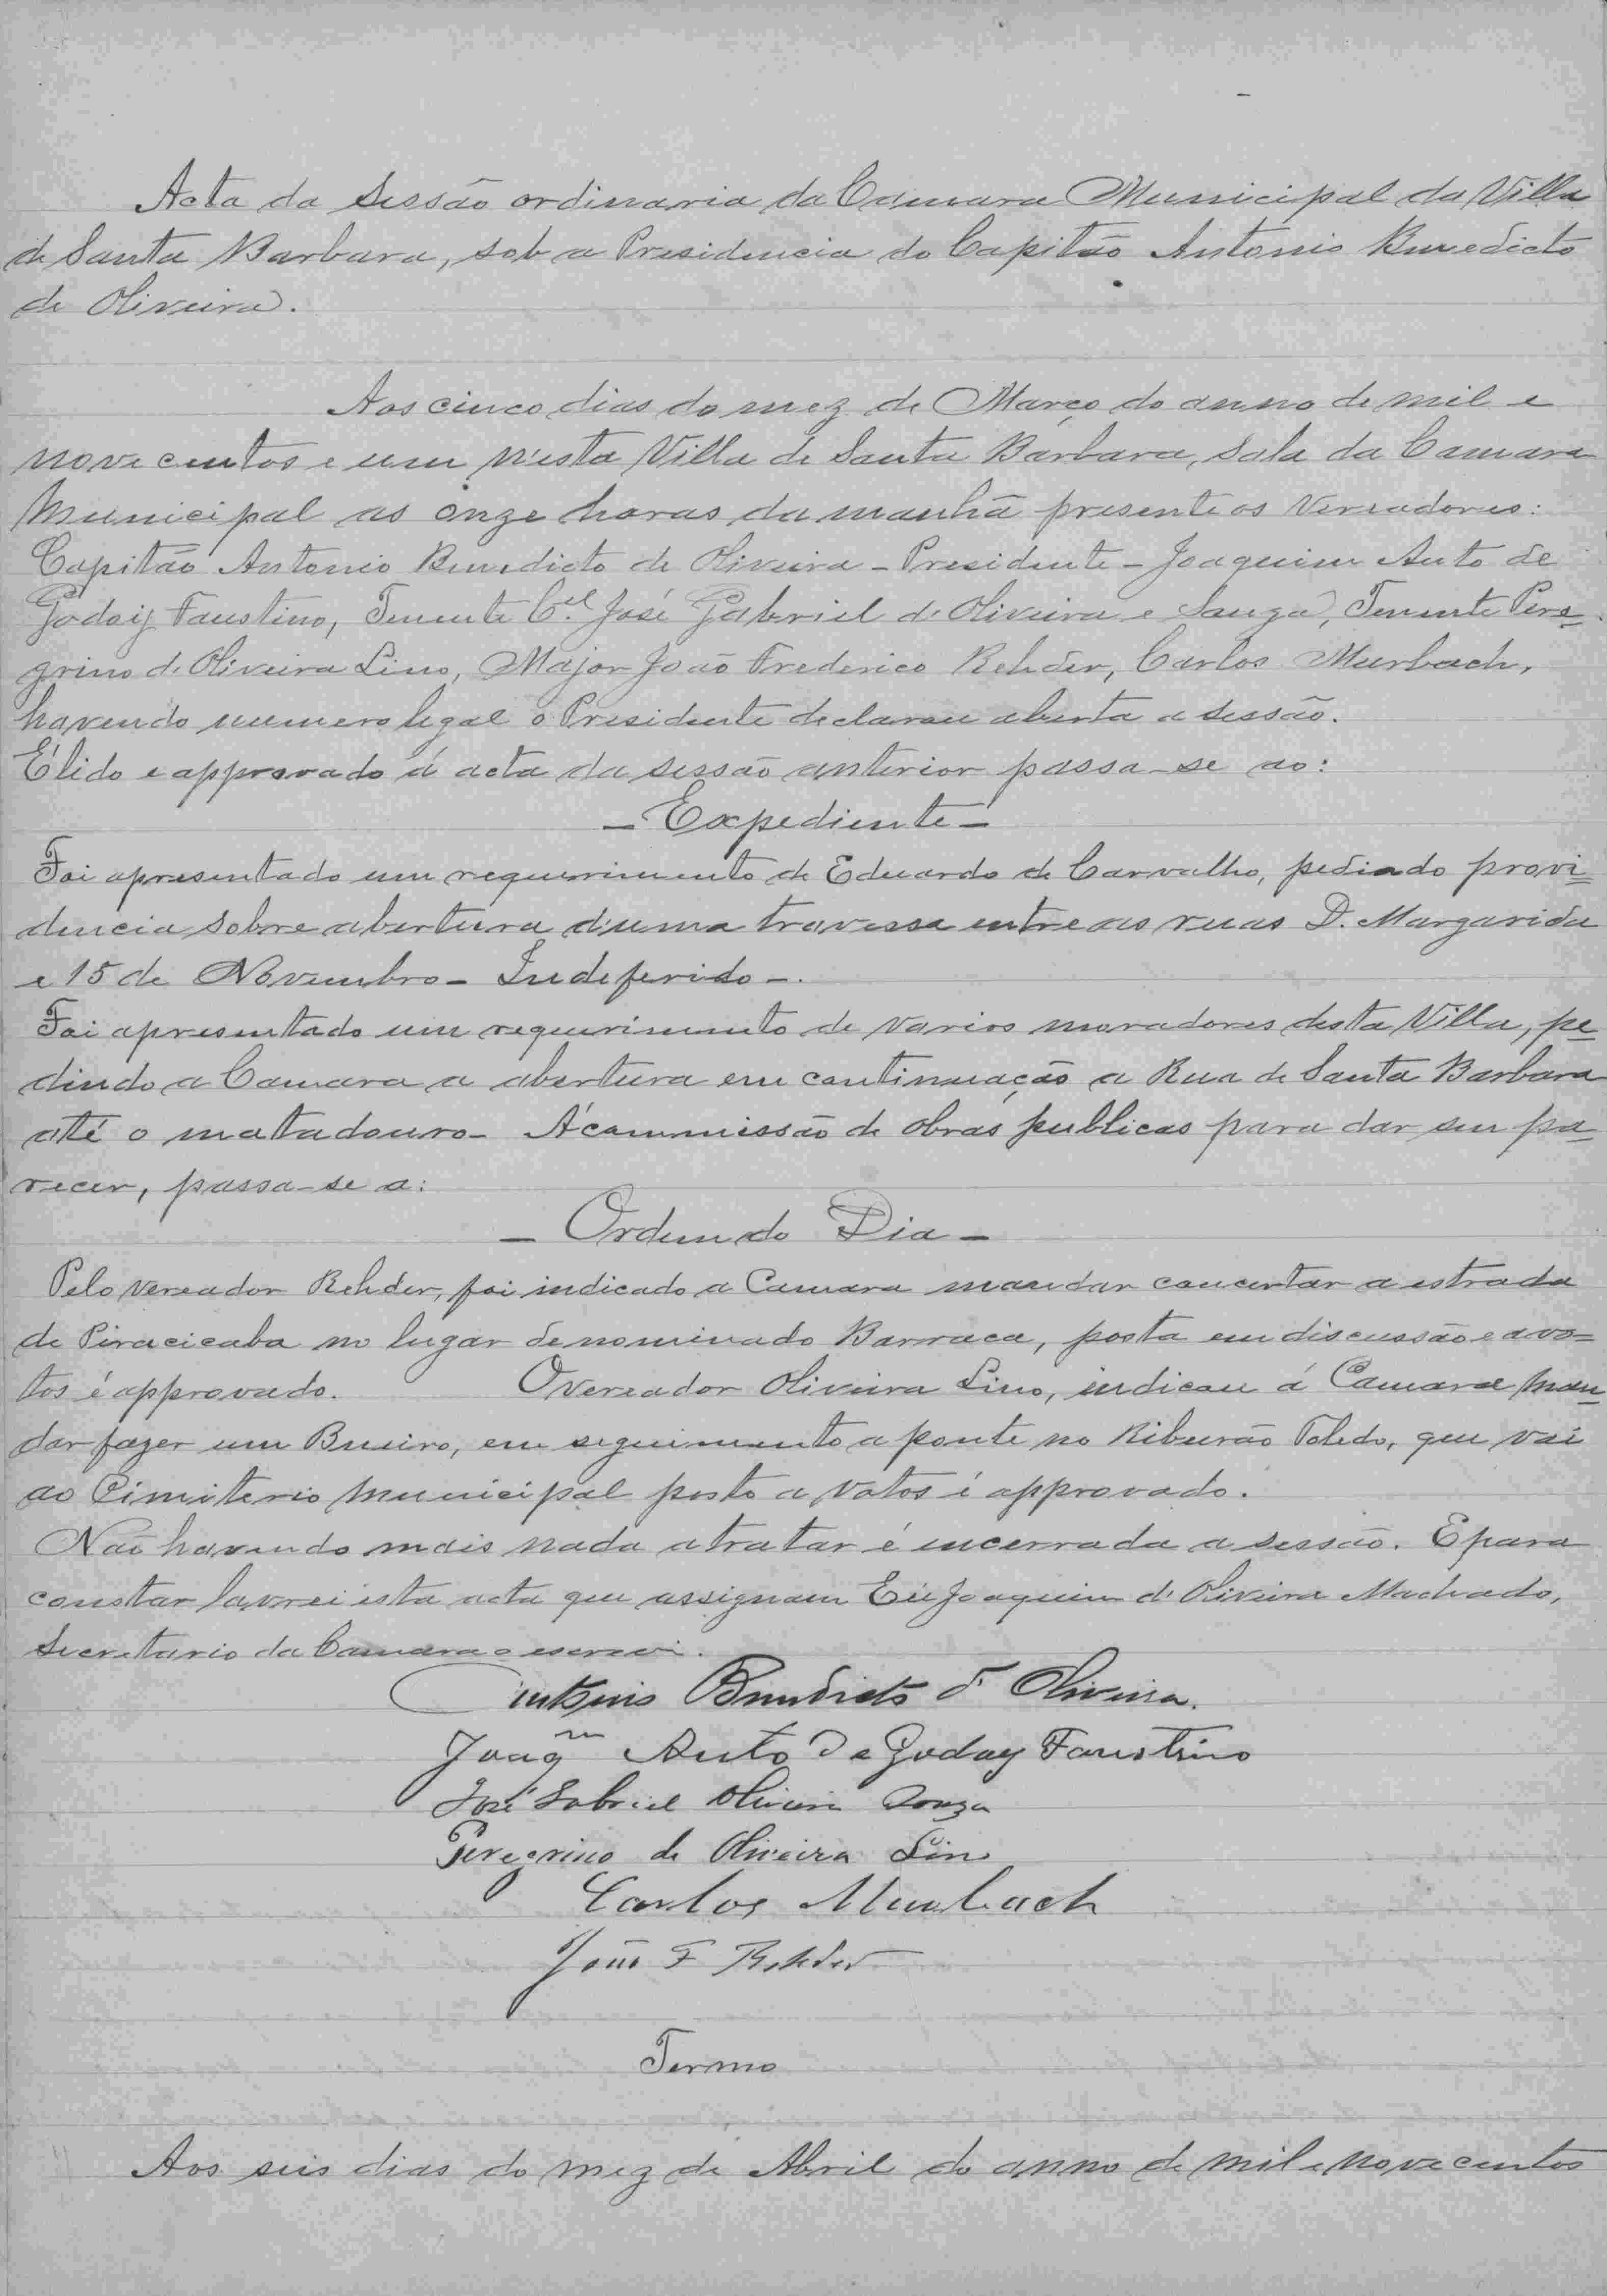 Acta da sessão ordinaria da Camara Municipal da Villa
de Santa Barbara, sob a Presidencia do Capitão Antonio Benedicto
de Oliveira.
Aos cinco dias do mez de Março do anno de mil e
nove centos e um n'esta Villa de Santa Barbara, sala da Camara
Municipal as onze horas da manhã presente os Vereadores:
Capitão Antonio Benedicto de Oliveira - Presidente - Joaquim Auto de
Godoy Faustino, Tenente C.el José Gabriel d'Oliveira e Souza, Tenente Pere=
grino d'Oliveira Lino, Major João Frederico Rehder, Carlos Murbach,
havendo numero legal o Presidente declarou aberta a sessão.
É lido e approvado á acta da sessão anterior passa-se ao:
- Expediente -
Foi apresentado um requerimento de Eduardo de Carvalho, pedindo provi=
dencia sobre abertura d'uma travessa entre as ruas D. Margarida
e 15 de Novembro - Indeferido -.
Foi apresentado um requerimento de varios moradores desta Villa, pe=
dindo a Camara a abertura em continuação a Rua de Santa Barbara
até o matadouro - Á commissão de obras publicas para dar seu pa=
recer, passa-se a:
- Ordem do Dia -
Pelo vereador Rehder, foi indicado a Camara mandar concertar a estrada
de Piracicaba no lugar denominado Barraca, posta em discussão e a vo=
tos é approvado. O vereador Oliveira Lino, indicou á Camara man=
dar fazer um Bueiro, em seguimento a ponte no Riburão Toledo, que vai
ao Cimiterio Municipal posto a votos é approvado.
Não havendo mais nada a tratar é encerrada a sessão. E para
constar lavrei esta acta que assignam Eu Joaquim d'Oliveira Machado,
Secretario da Camara o escrevi.
Antonio Benedicto d'Oliveira.
Joaqm Auto de Godoy Faustino
José Gabriel Oliveira Souza
Peregrino de Oliveira Lino
Carlos Murbach
João F Rehder
Termo
Aos seis dias do mez de Abril do anno de mil e nove centos